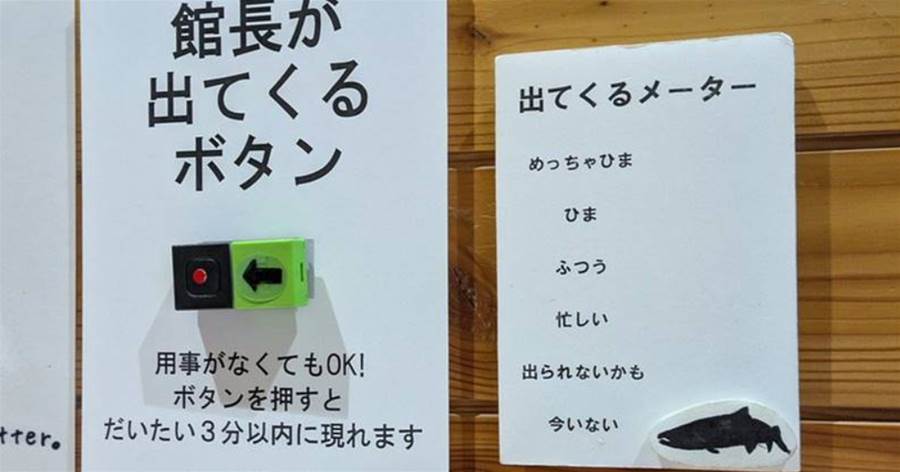 館長が
出てくる
ボタン
用事がなくてもOK!
ボタンを押すと
だいたい3分以内に現れます
出てくるメーター
めっちゃひま
ひま
ふつう
忙しい
出られないかも
今いない
tter.